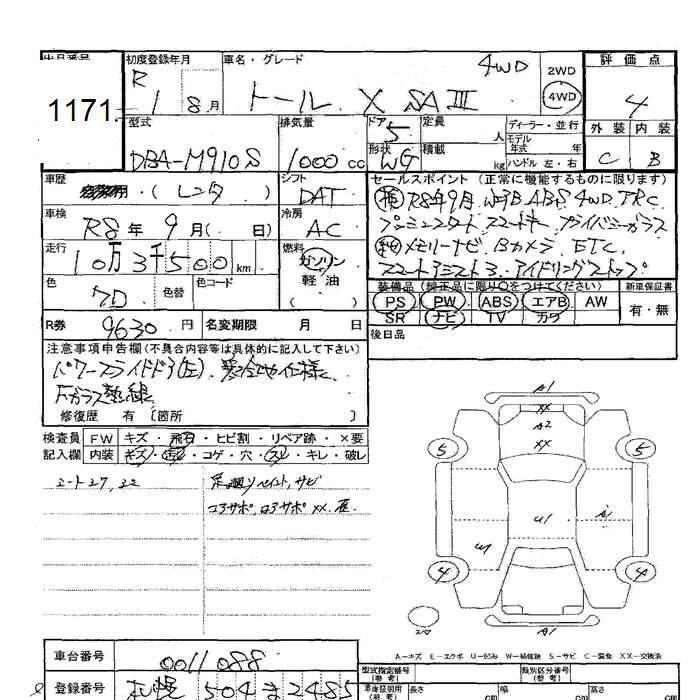 出品番号
1171
初度登録年月
R 1 8月
車名・グレード
トール X SAⅢ 4WD
2WD
4WD
評価点
4
外装 内装
C B
型式
DBA-M910S
排気量
1000 cc
ドア
5
形状
WG
定員
人
積載
kg
ディーラー・並行
モデル
年式 年
ハンドル 左・右
車歴
(レンタ)
シフト
DAT
セールスポイント (正常に機能するものに限ります)
R8年9月 WSB ABS 4WD TRC
プッシュスタート スマートキー プライバシーガラス
メモリーナビ Bカメラ ETC
スマートアシスト3 アイドリングストップ
車検
R8年 9月( 日)
冷房
AC
走行
10万3千500km
燃料
ガソリン
軽油
( )
色
色替
色コード
装備品 (純正品に限り○をつけてください)
PS PW ABS エアB AW
SR ナビ TV カワ
新車保証書
有・無
R券
9630円
名変期限 月 日
後日品
注意事項申告欄(不具合内容等は具体的に記入して下さい)
パワースライドドア(左)、寒冷地仕様、
Fガラス熱線
修復歴 有 (箇所 )
検査員
記入欄
FW キズ・飛石・ヒビ割・リペア跡・×要
内装 キズ・汚レ・コゲ・穴・スレ・キレ・破レ
シート27,22
足廻りペイント、サビ
コアサポ、ロアサポ XX、
A1
XX
A2
XX
5 5
U1 A1
W1
4 4
A1
A-キズ E-エクボ U-凹み W-補修跡 S-サビ C-腐食 XX-交換済
車台番号
0011088
登録番号
札幌 504 ま 2485
型式指定番号
(参考)
類別区分番号
(参考)
車庫証明用
(参考)
長さ cm
幅 cm
高さ cm